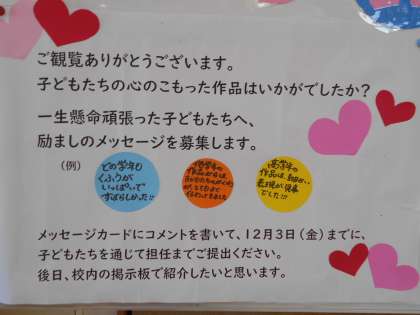 ご観覧ありがとうございます。
子どもたちの心のこもった作品はいかがでしたか？
一生懸命頑張った子どもたちへ、
励ましのメッセージを募集します。
（例）
どの学年も
くふうが
いっぱいで
すばらしかった!!
高学年の
作品は、細かい
表現が見事
でした!!!
メッセージカードにコメントを書いて、12月3日（金）までに、
子どもたちを通じて担任までご提出ください。
後日、校内の掲示板で紹介したいと思います。